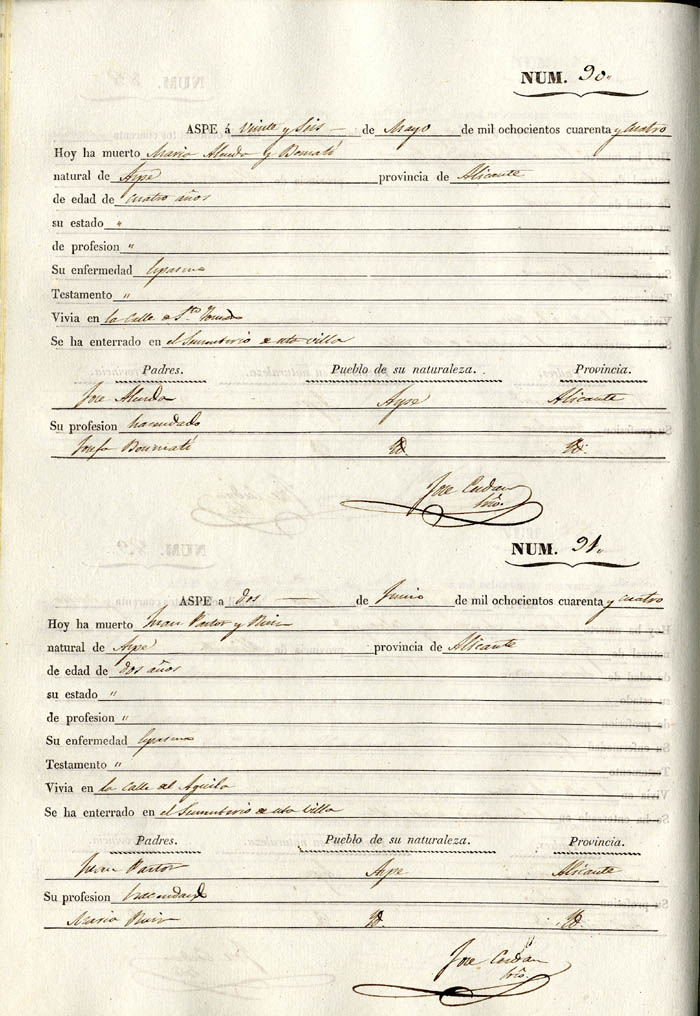 NUM. 90.
ASPE á Vinte y Seis — de Mayo de mil ochocientos cuarenta y cuatro
Hoy ha muerto Maria y Bonmatí
natural de Aspe provincia de Alicante
de edad de cuatro años
su estado "
de profesion "
Su enfermedad
Testamento "
Vivia en la Calle de
Se ha enterrado en el de esta villa
Padres. Pueblo de su naturaleza. Provincia.
Jose Aspe Alicante
Su profesion hacendado
Josefa Bonmatí Id. Id.
Jose Cerdan
NUM. 91.
ASPE a dos — de Junio de mil ochocientos cuarenta y cuatro
Hoy ha muerto Juan Pastor y
natural de Aspe provincia de Alicante
de edad de dos años
su estado "
de profesion "
Su enfermedad
Testamento "
Vivia en la Calle del Aguila
Se ha enterrado en el de esta Villa
Padres. Pueblo de su naturaleza. Provincia.
Juan Pastor Aspe Alicante
Su profesion
Maria Id. Id.
Jose Cerdan